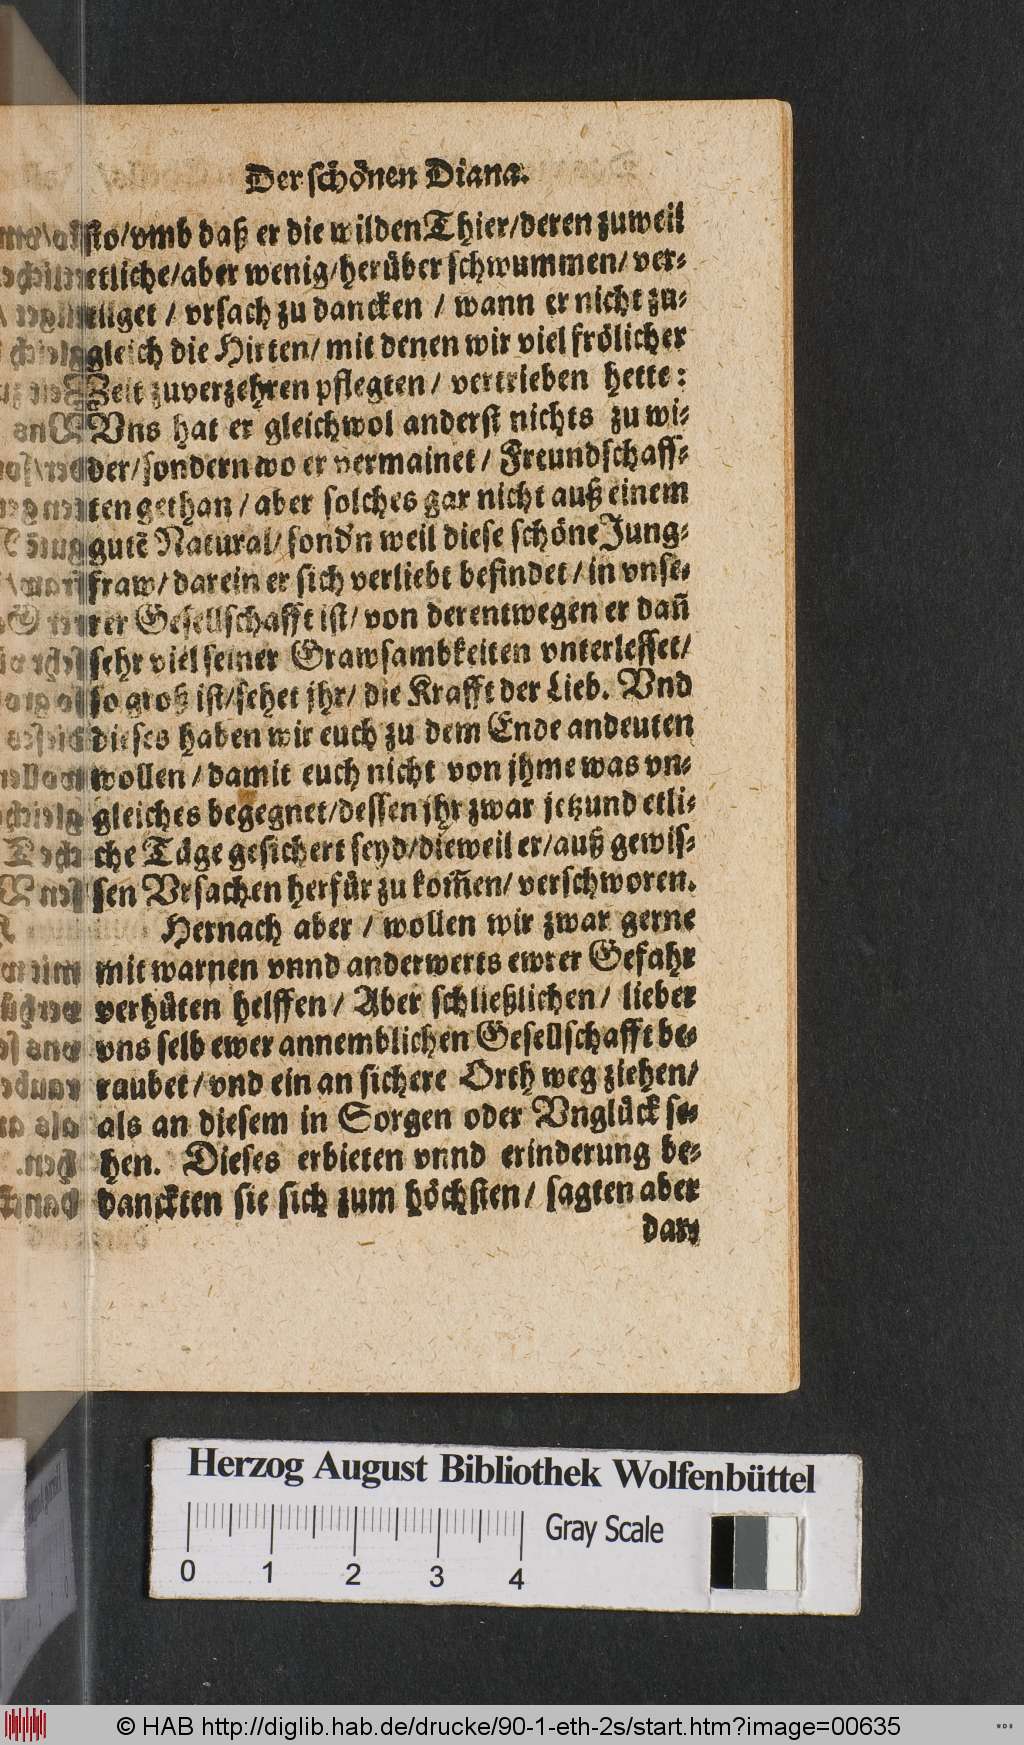 Der schönen Diana.
sto/vmb daß er die wilden Thier/deren zuweil
etliche/aber wenig/herüber schwummen/ ver-
tilget / vrsach zu dancken / wann er nicht zu-
gleich die Hirten/ mit denen wir viel frölicher
Zeit zuverzehren pflegten/ vertrieben hette:
Vns hat er gleichwol anderst nichts zu wi-
der/sondern wo er vermainet/ Freundschaff-
ten gethan / aber solches gar nicht auß einem
gutē Natural/ sond'n weil diese schöne Jung-
fraw/ darein er sich verliebt befindet / in vnse-
rer Gesellschafft ist/ von derentwegen er dañ
sehr viel seiner Grawsambkeiten vnterlesset/
so groß ist/sehet jhr/ die Krafft der Lieb. Vnd
dieses haben wir euch zu dem Ende andeuten
wollen / damit euch nicht von jhme was vn-
gleiches begegnet/dessen jhr zwar jetzund etli-
che Täge gesichert seyd/dieweil er/auß gewis-
sen Vrsachen herfür zu kom̄en/ verschworen.
Hernach aber / wollen wir zwar gerne
mit warnen vnnd anderwerts ewrer Gefahr
verhüten helffen/ Aber schließlichen/ lieber
vns selb ewer annemblichen Gesellschafft be-
raubet/ vnd ein an sichere Orth weg ziehen/
als an diesem in Sorgen oder Vnglück se-
hen. Dieses erbieten vnnd erinderung be-
danckten sie sich zum höchsten/ sagten aber
dar-
Herzog August Bibliothek Wolfenbüttel
Gray Scale
0 1 2 3 4
© HAB http://diglib.hab.de/drucke/90-1-eth-2s/start.htm?image=00635